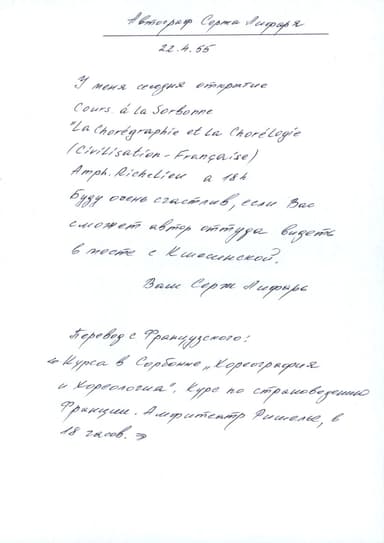 Автограф Сержа Лифаря
22.4.55
У меня сегодня открытие
Cours à la Sorbonne
"La Chorégraphie et La Chorélogie
(Civilisation-Française)
Amph. Richelieu a 18h
Буду очень счастлив, если Вас
сможет автор оттуда видеть
вместе с Кшесинской.
Ваш Серж Лифарь
Перевод с Французского:
Курса в Сорбонне „Хореография
и Хореология". Курс по страноведению
Франции. Амфитеатр Ришелье, в
18 часов.